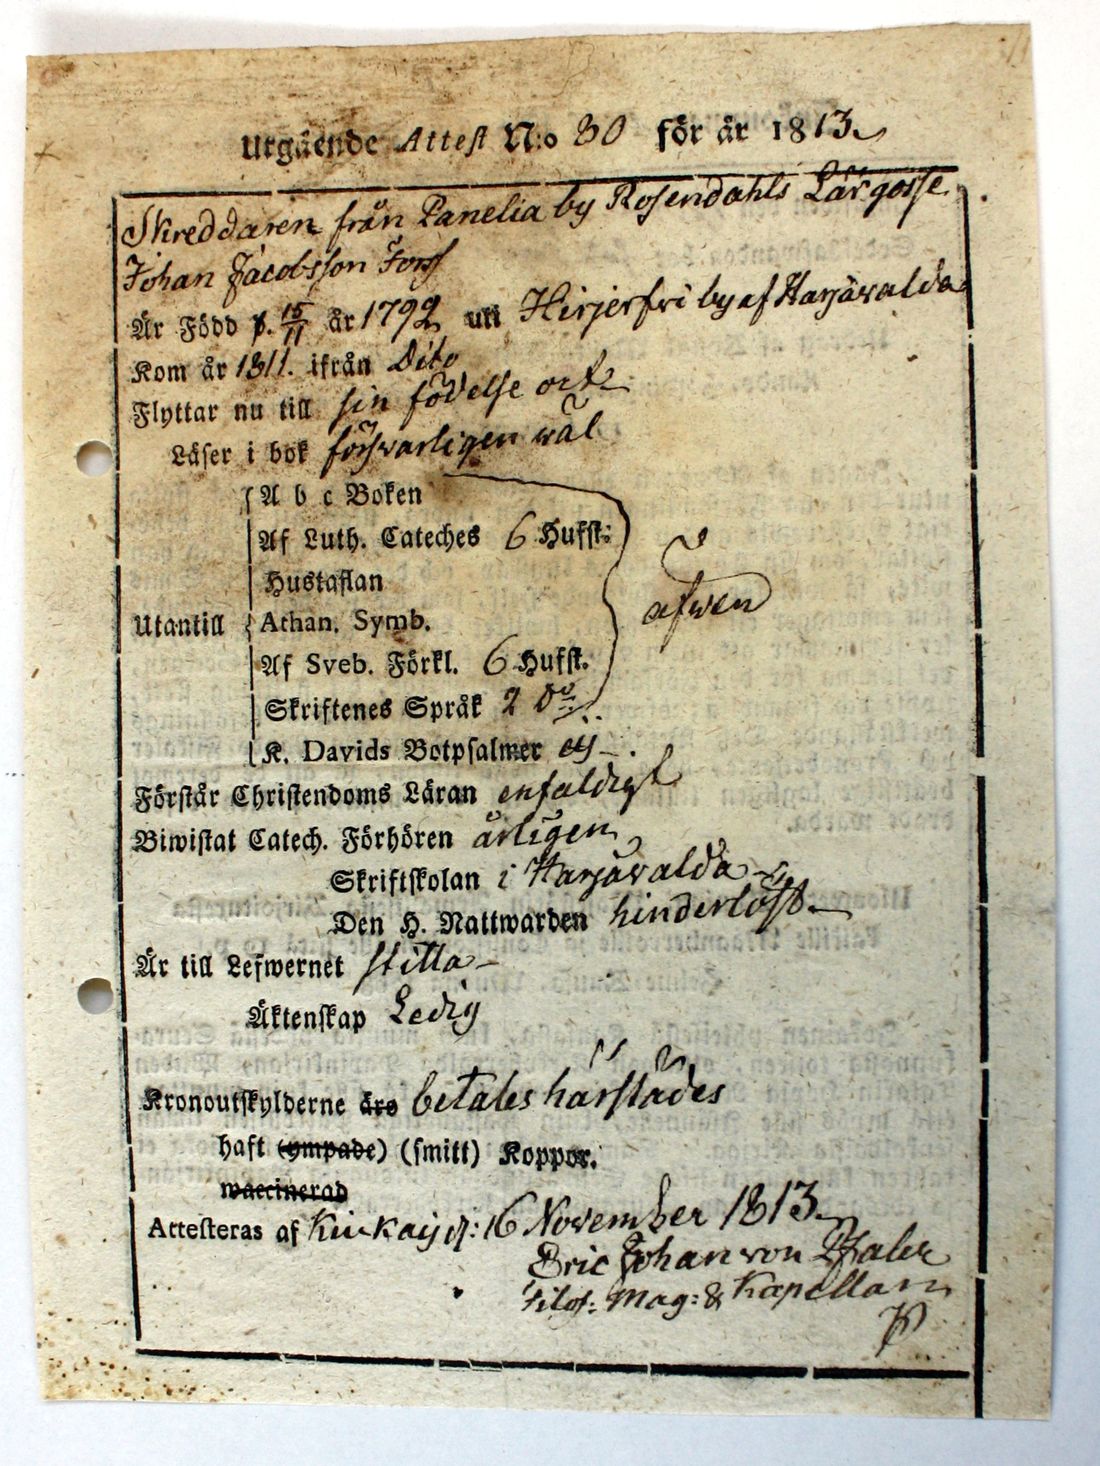 Utgående Attest N:o 30 för år 1813.
Skreddaren från Panelia by Rosendahls Lärgosse
Johan Jacobsson Forss
Är Född d. 15/11 år 1792 uti Hirjerfvi by af Harjawalda
Kom år 1811. ifrån Dito
Flyttar nu till sin födelse ort
Läser i bok försvarligen wäl
A b c Boken
Af Luth. Cateches 6 Hufst:
Hustaflan
äfwen
Utantill Athan. Symb.
Af Sveb. Förkl. 6 Hufst.
Skriftenes Språk 2 Do
K. Davids Botpsalmer ej
Förstår Christendoms Läran enfaldigt
Biwistat Catech. Förhören ärligen
Skriftskolan i Harjawalda
Den H. Nattwarden hinderlöst
Är till Lefwernet stilla
Äktenskap Ledig
Kronoutskylderne äro betales härstädes
haft (ympade) (smitt) Koppor.
waccinerad
Attesteras af Kiukais d: 16 November 1813
Eric Johan von Pfaler
Filos: Mag: & Kapellan